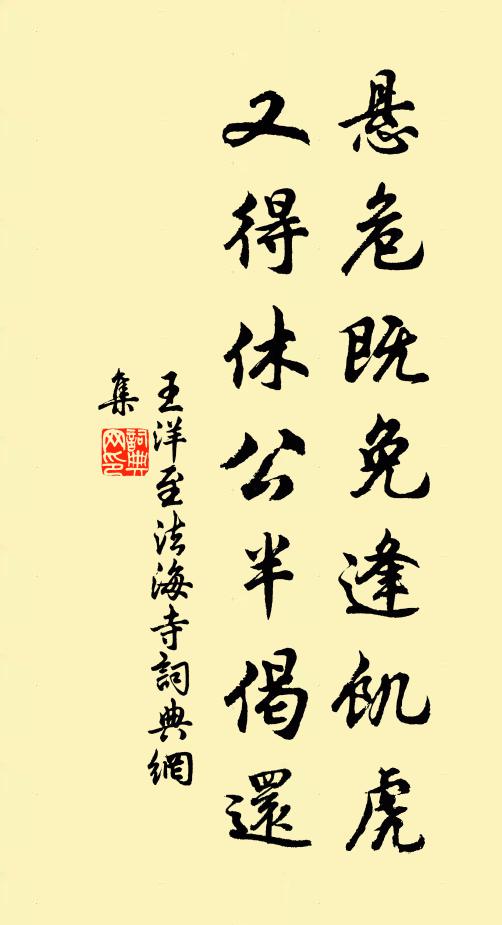 悬危既免逢飢虎
又得休公半偈還
王洋至法海寺詞典網
集
詞典网印